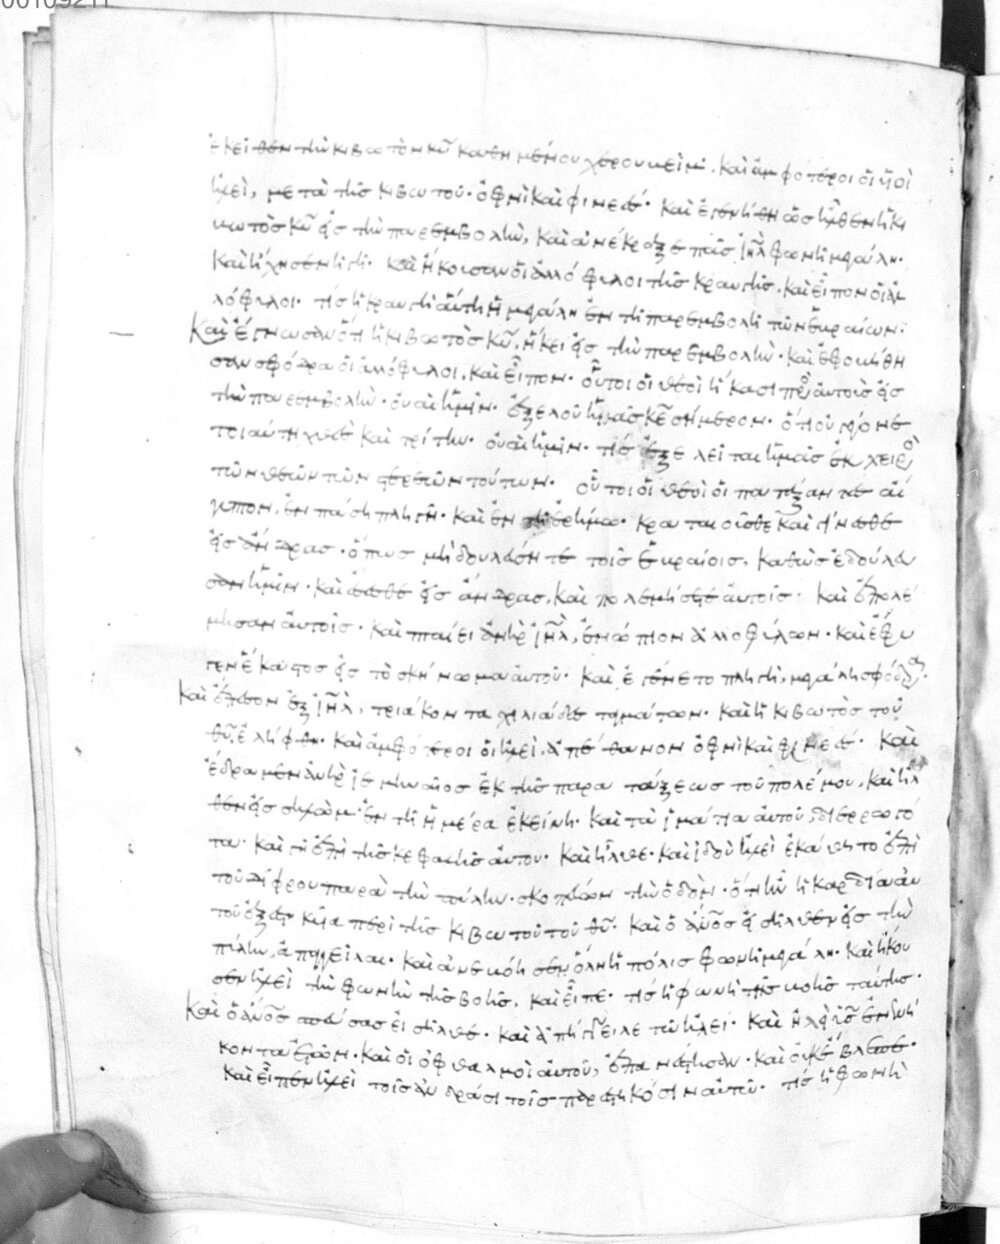 00109211
ἐκεῖθεν τὴν κιβωτὸν κυ καθημένου χερουβείμ. καὶ ἀμφότεροι οἱ υἱοὶ
ἡλεὶ, μετὰ τῆς κιβωτοῦ. ὀφνὶ καὶ φινεές. καὶ ἐγενήθη ὡς ἦλθεν ἡ κι
βωτὸς κυ εἰς τὴν παρεμβολὴν, καὶ ἀνέκραξε πᾶς ιηλ φωνῆ μεγάλη.
καὶ ἤχησεν ἡ γῆ. καὶ ἤκουσαν οἱ ἀλλόφυλοι τῆς κραυγῆς. καὶ εἶπον οἱ ἀλ
λόφυλοι. τίς ἡ κραυγὴ αὕτη ἡ μεγάλη ἐν τῆ παρεμβολῆ τῶν ἑβραίων.
Καὶ ἔγνωσαν ὅτι ἡ κιβωτὸς κυ, ἥκει εἰς τὴν παρεμβολὴν. καὶ ἐφοβήθη
σαν σφόδρα οἱ ἀλλόφυλοι, καὶ εἶπον. οὗτοι οἱ θεοὶ ἥκασι πρὸς αὐτοὺς εἰς
τὴν παρεμβολὴν. οὐαὶ ἡμῖν. ἐξελοῦ ἡμᾶς κε σήμερον. ὅτι οὐ γέγονε
τοιαύτη χθὲς καὶ τρίτην. οὐαὶ ἡμῖν. τίς ἐξελεῖται ἡμᾶς ἐκ χειρὸς
τῶν θεῶν τῶν στερεῶν τούτων. οὗτοι οἱ θεοὶ οἱ πατάξαντες αἴ
γυπτον, ἐν πάση πληγῆ. καὶ ἐν τῆ ἐρήμω. κραταιοῦσθε καὶ γίνεσθε
εἰς ἄνδρας. ὅπως μὴ δουλεύσητε τοῖς ἑβραίοις, καθὼς ἐδούλευ
σαν ἡμῖν. καὶ ἔσεσθε εἰς ἄνδρας, καὶ πολεμήσετε αὐτοῖς. καὶ ἐπολέ
μησαν αὐτοῖς. καὶ πταίει ἀνὴρ ιηλ, ἐνώπιον ἀλλοφύλων. καὶ ἔφυ
γεν ἕκαστος εἰς τὸ σκήνωμα αὐτοῦ. καὶ ἐγένετο πληγὴ, μεγάλη σφόδρα.
Καὶ ἔπεσον ἐξ ιηλ, τριάκοντα χιλιάδες ταγμάτων. καὶ ἡ κιβωτὸς τοῦ
θυ, ἐλήφθη. καὶ ἀμφότεροι οἱ υἱοὶ ἡλεὶ, ἀπέθανον ὀφνὶ καὶ φινεές. καὶ
ἔδραμεν ἀνὴρ ἰεμηναῖος ἐκ τῆς παρατάξεως τοῦ πολέμου, καὶ ἦλ
θεν εἰς σηλὼμ ἐν τῆ ἡμέρα ἐκείνη. καὶ τὰ ἱμάτια αὐτοῦ, διερρωγό
τα. καὶ γῆ ἐπὶ τῆς κεφαλῆς αὐτοῦ. καὶ ἦλθε. καὶ ἰδοὺ ἡλεὶ ἐκάθητο ἐπὶ
τοῦ δίφρου παρὰ τὴν πύλην. σκοπεύων τὴν ὁδὸν. ὅτι ἦν ἡ καρδία αὐ
τοῦ ἐξεστηκυῖα περὶ τῆς κιβωτοῦ τοῦ θυ. καὶ ὁ ανος εἰσῆλθεν εἰς τὴν
πόλιν, ἀπαγγεῖλαι. καὶ ἀνεβόησεν ὅλη ἡ πόλις φωνῆ μεγάλη. καὶ ἤκου
σεν ἡλεὶ τὴν φωνὴν τῆς βοῆς, καὶ εἶπε. τίς ἡ φωνὴ τῆς βοῆς ταύτης.
Καὶ ὁ ανος σπεύσας εἰσῆλθε. καὶ ἀπήγγειλε τῶ ἡλεί. καὶ ἡλεὶ υἱὸς ἐνενή
κοντα ἐτῶν. καὶ οἱ ὀφθαλμοὶ αὐτοῦ, ἐπανέστησαν. καὶ οὐκ ἔβλεπε.
καὶ εἶπεν ἡλεὶ τοῖς ἀνδράσι τοῖς περιεστηκόσιν αὐτῶ. τίς ἡ φωνὴ